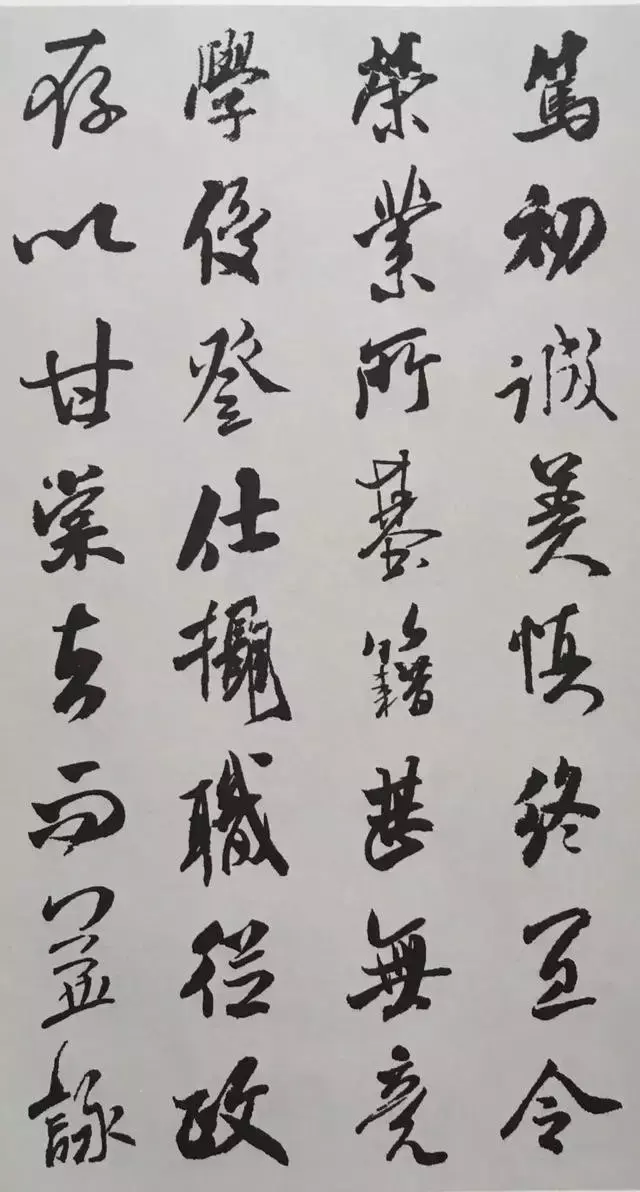 篤初誠美慎終宜令
榮業所基籍甚無竟
學優登仕攝職從政
存以甘棠去而益詠